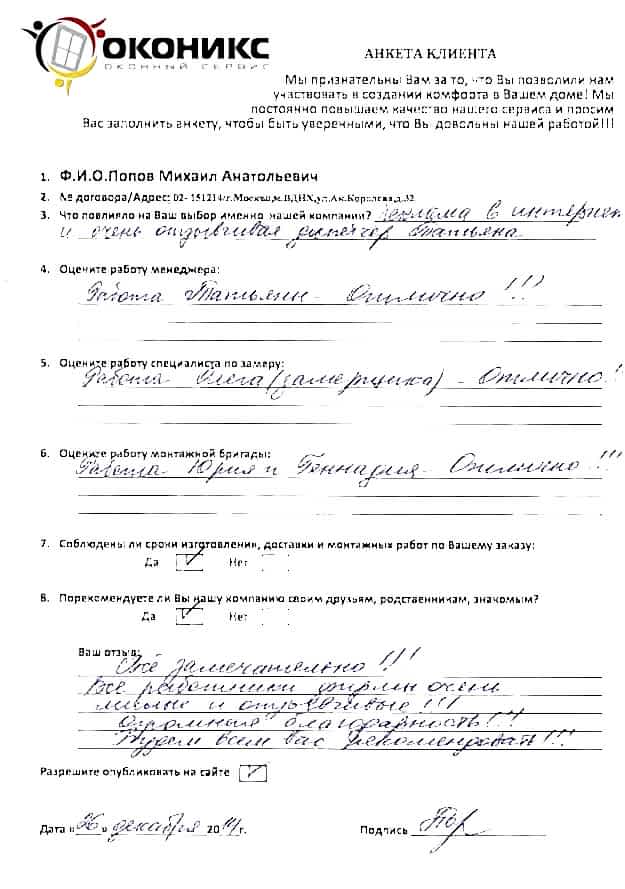 ОКОНИКС
ОКОННЫЙ СЕРВИС
АНКЕТА КЛИЕНТА
Мы признательны Вам за то, что Вы позволили нам
участвовать в создании комфорта в Вашем доме! Мы
постоянно повышаем качество нашего сервиса и просим
Вас заполнить анкету, чтобы быть уверенными, что Вы довольны нашей работой!!!
1. Ф.И.О.Попов Михаил Анатольевич
2. № договора/Адрес: 02-151214/г.Москва,м.ВДНХ,ул.Ак.Королева,д.32
3. Что повлияло на Ваш выбор именно нашей компании? Реклама в интернет
и очень отзывчивая диспетчер Татьяна
4. Оцените работу менеджера:
Работа Татьяны - Отлично!!!
5. Оцените работу специалиста по замеру:
Работа Олега (замерщика) - Отлично!
6. Оцените работу монтажной бригады:
Работа Юрия и Геннадия - Отлично!!!
7. Соблюдены ли сроки изготовления, доставки и монтажных работ по Вашему заказу:
Да ✓ Нет
8. Порекомендуете ли Вы нашу компанию своим друзьям, родственникам, знакомым?
Да ✓ Нет
Ваш отзыв:
Всё замечательно!!!
Все работники фирмы очень
милые и отзывчивые!!!
Огромная благодарность!!!
Будем всем вас рекомендовать!!!
Разрешите опубликовать на сайте ✓
Дата «26» декабря 2014г. Подпись